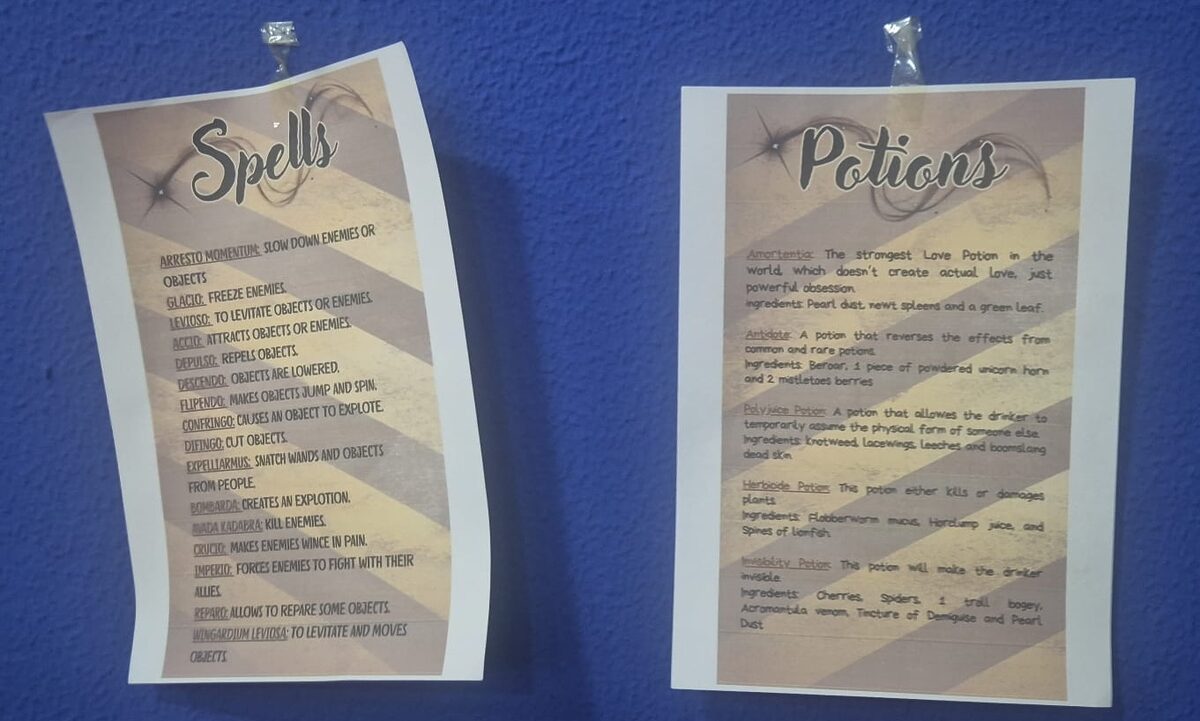 Spells
ARRESTO MOMENTUM: SLOW DOWN ENEMIES OR
OBJECTS
GLACIO: FREEZE ENEMIES.
LEVIOSO: TO LEVITATE OBJECTS OR ENEMIES.
ACCIO: ATTRACTS OBJECTS OR ENEMIES.
DEPULSO: REPELS OBJECTS.
DESCENDO: OBJECTS ARE LOWERED.
FLIPENDO: MAKES OBJECTS JUMP AND SPIN.
CONFRINGO: CAUSES AN OBJECT TO EXPLOTE.
DIFINGO: CUT OBJECTS.
EXPELLIARMUS: SNATCH WANDS AND OBJECTS
FROM PEOPLE.
BOMBARDA: CREATES AN EXPLOTION.
AVADA KADABRA: KILL ENEMIES.
CRUCIO: MAKES ENEMIES WINCE IN PAIN.
IMPERIO: FORCES ENEMIES TO FIGHT WITH THEIR
ALLIES.
REPARO: ALLOWS TO REPARE SOME OBJECTS.
WINGARDIUM LEVIOSA: TO LEVITATE AND MOVES
OBJECTS.
Potions
Amortentia: The strongest Love Potion in the
world, which doesn't create actual love, just
powerful obsession.
Ingredients: Pearl dust, newt spleens and a green leaf.
Antidote: A potion that reverses the effects from
common and rare potions.
Ingredients: Beroar, 1 piece of powdered unicorn horn
and 2 mistletoes berries
Polyjuice Potion: A potion that allowes the drinker to
temporarily assume the physical form of someone else.
Ingredients: knotweed, lacewings, leeches and boomslang
dead skin.
Herbicide Potion: This potion either kills or damages
plants.
Ingredients: Flobberworm mucus, Horclump juice, and
Spines of lionfish.
Invisibility Potion: This potion will make the drinker
invisible.
Ingredients: Cherries, Spiders, 1 troll bogey,
Acromantula venom, Tincture of Demiguise and Pearl
Dust